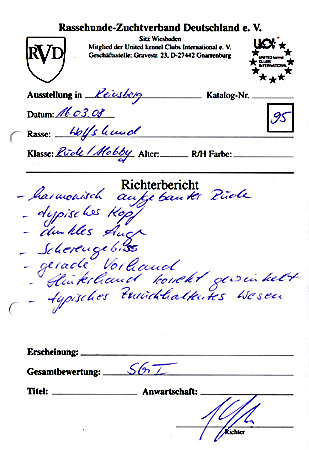 Rassehunde-Zuchtverband Deutschland e. V.
Sitz Wiesbaden
Mitglied der United kennel Clubs International e. V.
Geschäftsstelle: Gravestr. 23, D-27442 Gnarrenburg
RVD
UCI
UNITED kennel
CLUBS
INTERNATIONAL
Ausstellung in Reinsberg Katalog-Nr.
Datum: 16.03.08
95
Rasse: Wolfshund
Klasse: Rüde / Hobby Alter: R/H Farbe:
Richterbericht
- harmonisch aufgebauter Rüde
- typisches Kopf
- dunkles Auge
- Scherengebiss
- gerade Vorhand
- Hinterhand korrekt gewinkelt
- typisches zurückhaltendes Wesen
Erscheinung:
Gesamtbewertung: SG I
Titel: Anwartschaft:
Richter